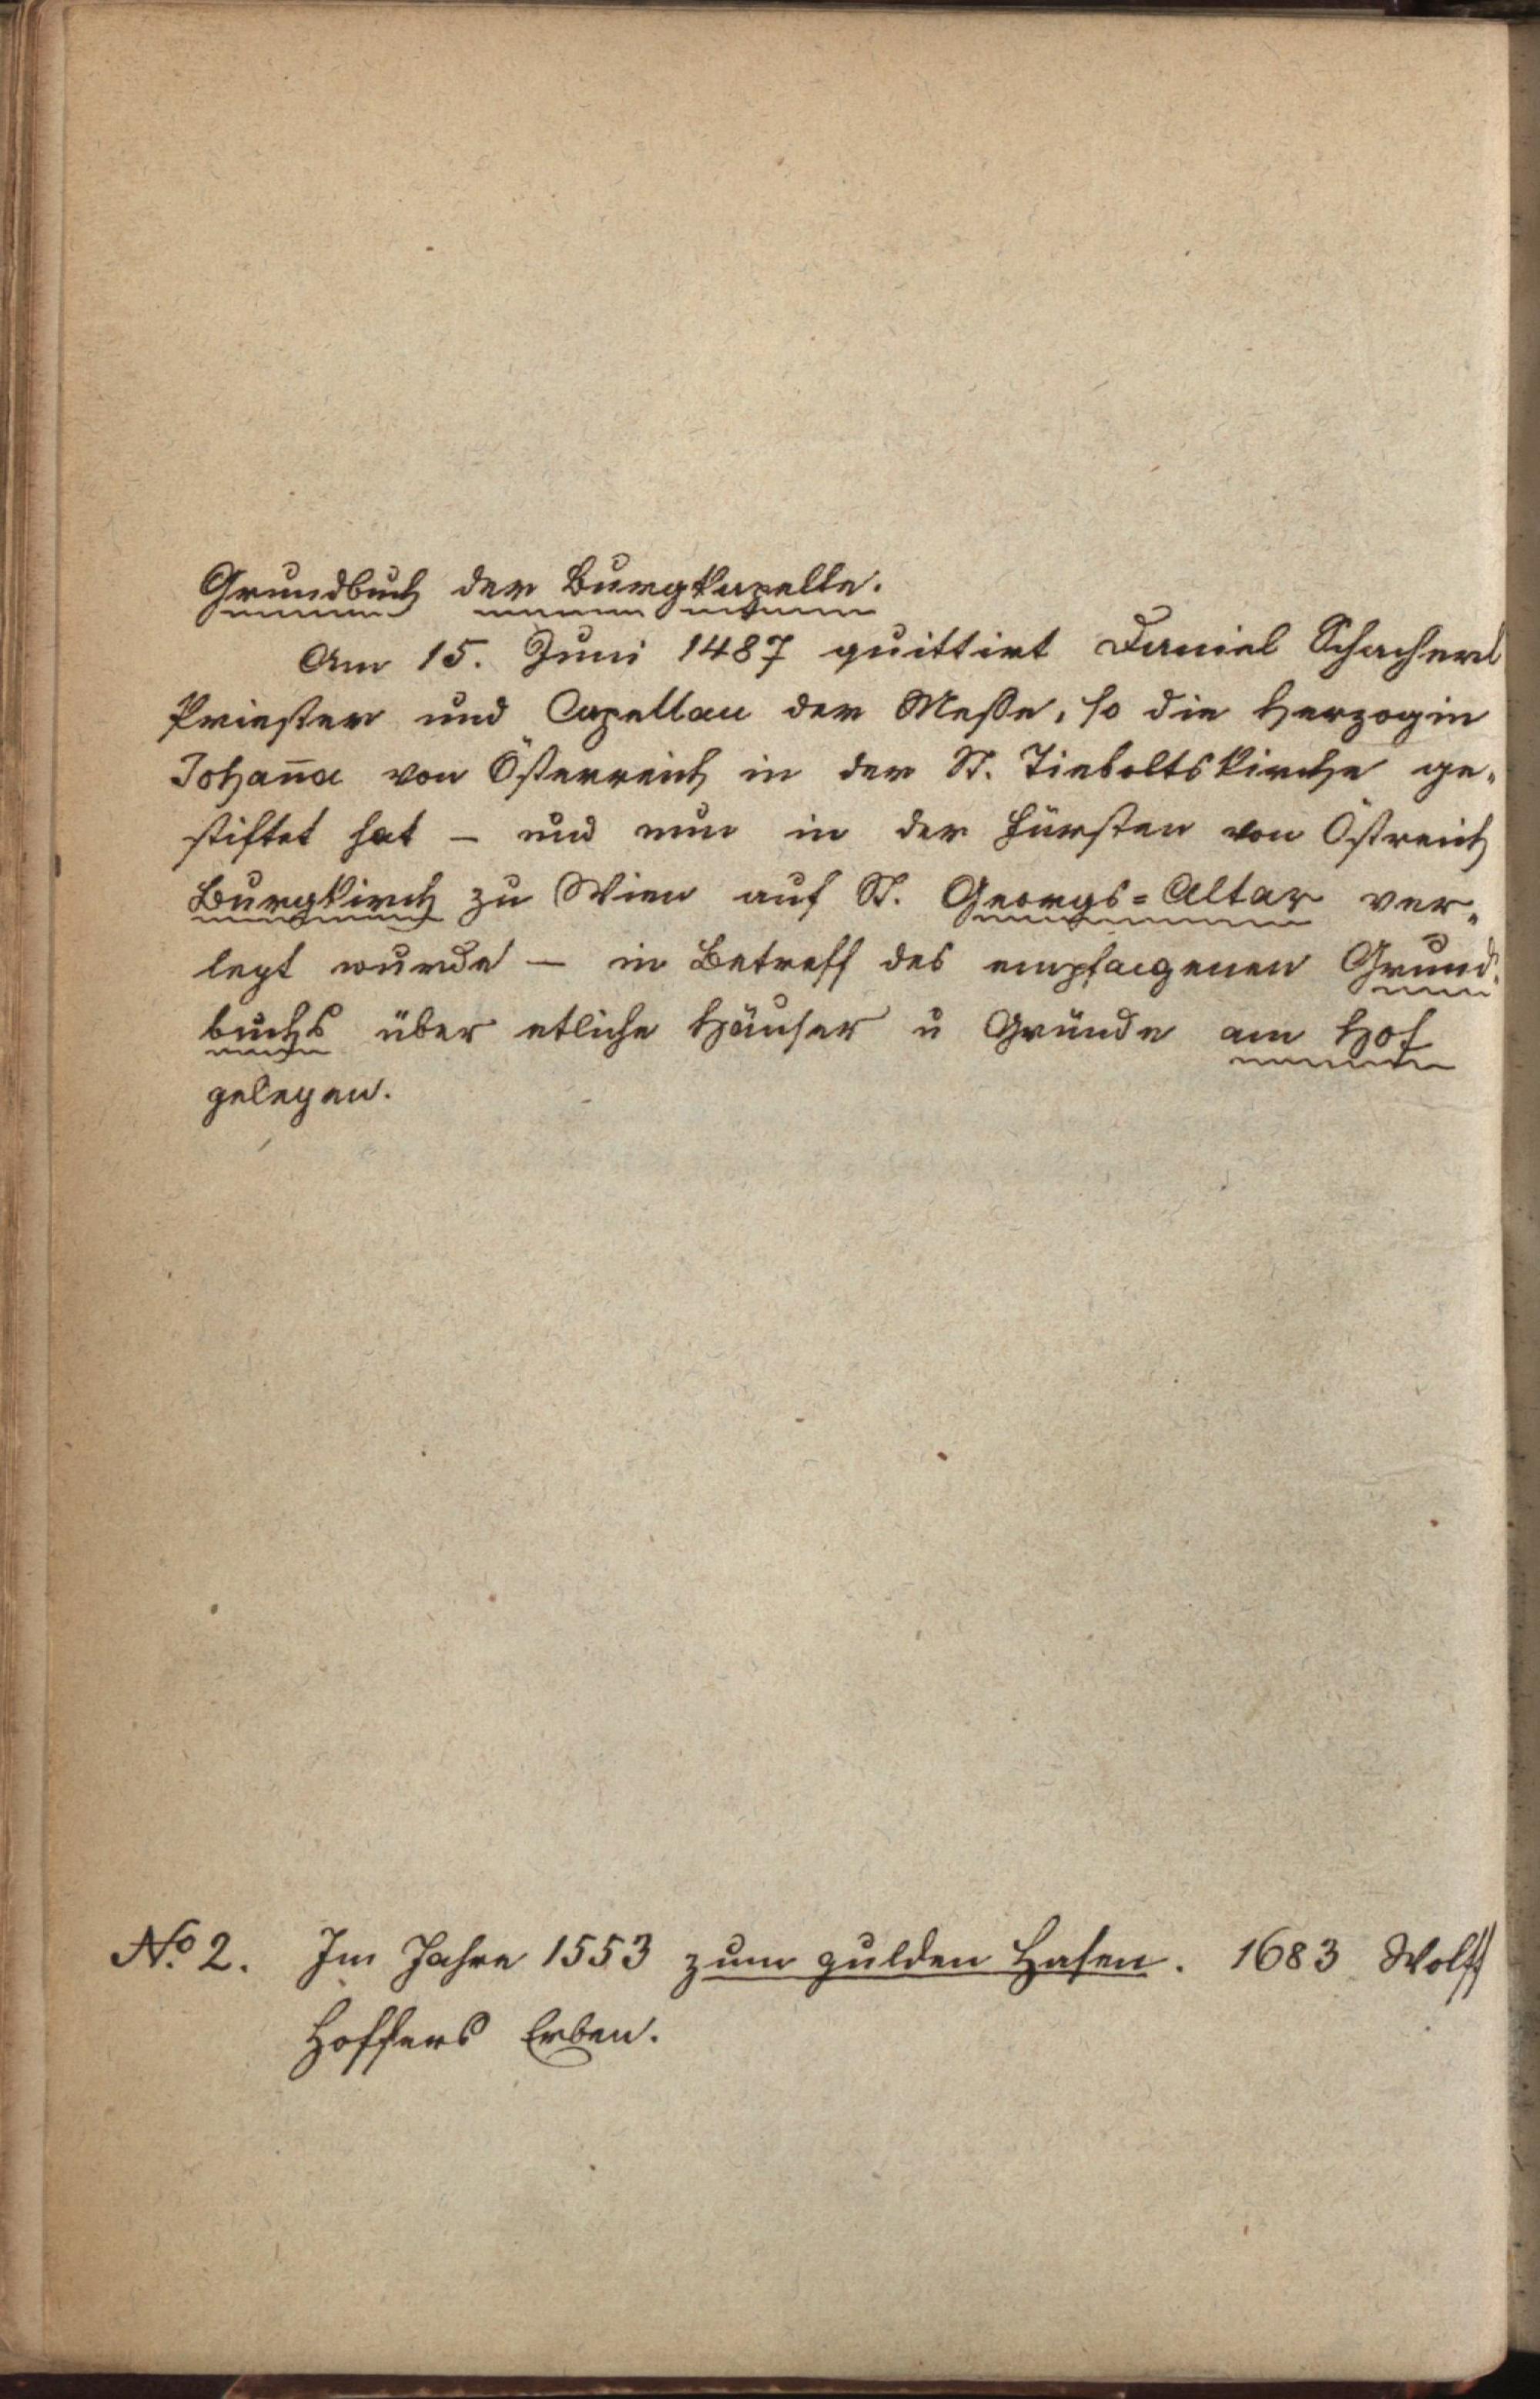 Grundbuch der Burgkapelle.
Am 15. Juni 1487 quittirt Daniel Schacherl
Priester und Capellan der Messe, so die Herzogin
Johana̅ von Österreich in der St. Tieboltskirche ge-
stiftet hat – und nun in der Fürsten von Östreich
Burgkirch zu Wien auf St. Georgs=Altar ver-
legt wurde – in Betreff des empfangenen Grund-
buchs über etliche Häuser u Gründe am Hof
gelegen.
No. 2. Im Jahre 1553 zum gulden Hasen. 1683 Wolff
Hoffers Erben.